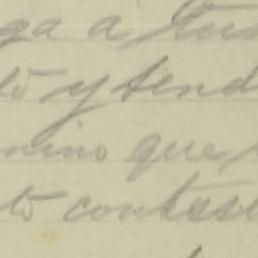 ga a
to y tend
mino que
to contest